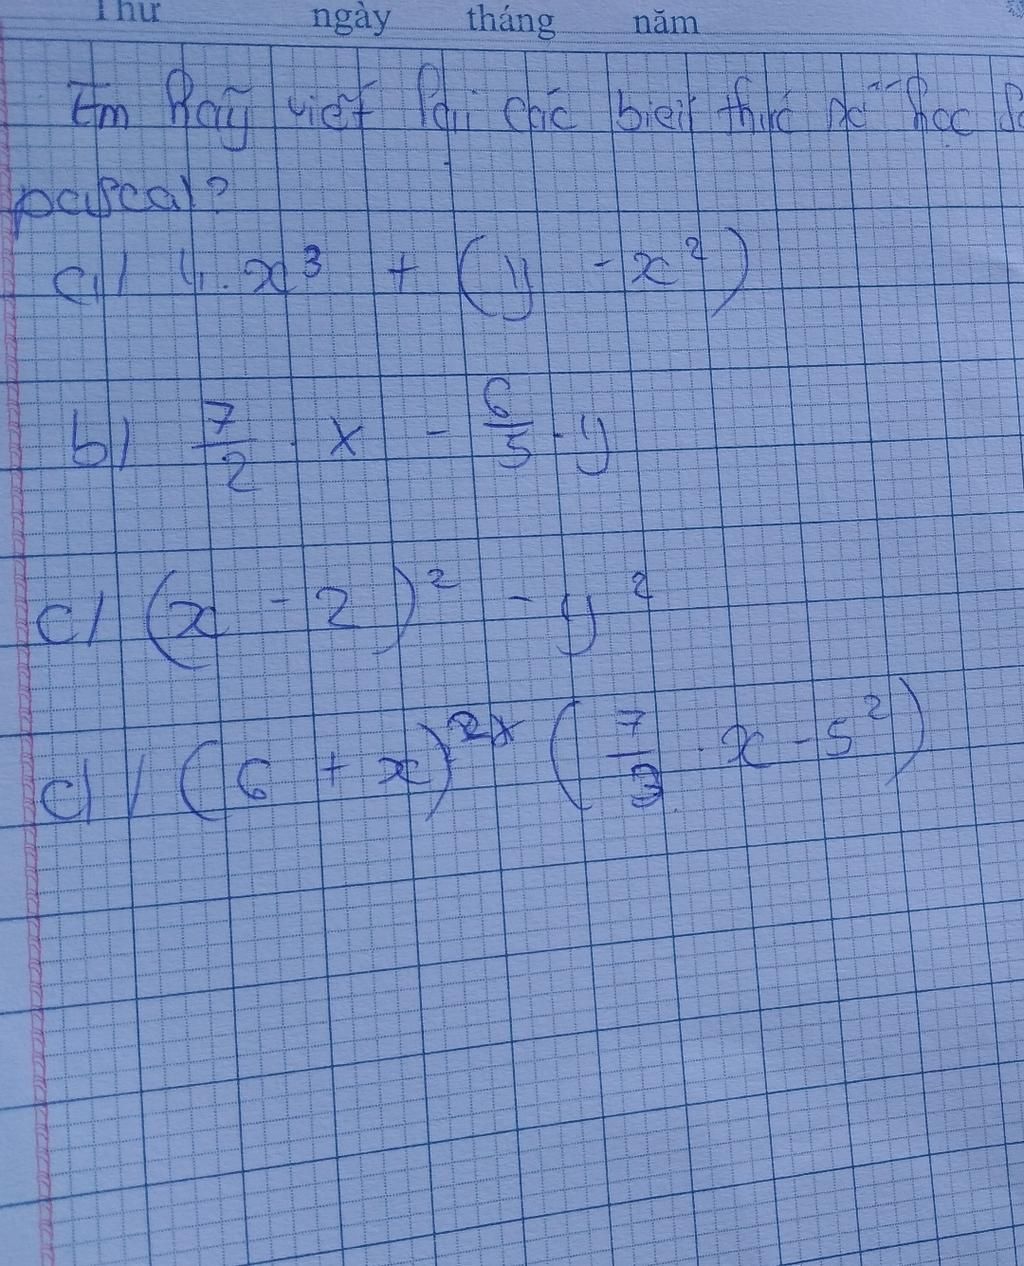 Thứ ngày tháng năm
Em hãy viết lại các biểu thức số học
pascal?
a/ 4.x³ + (y - x²)
b/ 7/2 . x - 6/5 . y
c/ (x - 2)² - y²
d/ (6 + x)² * (7/3 . x - 5²)